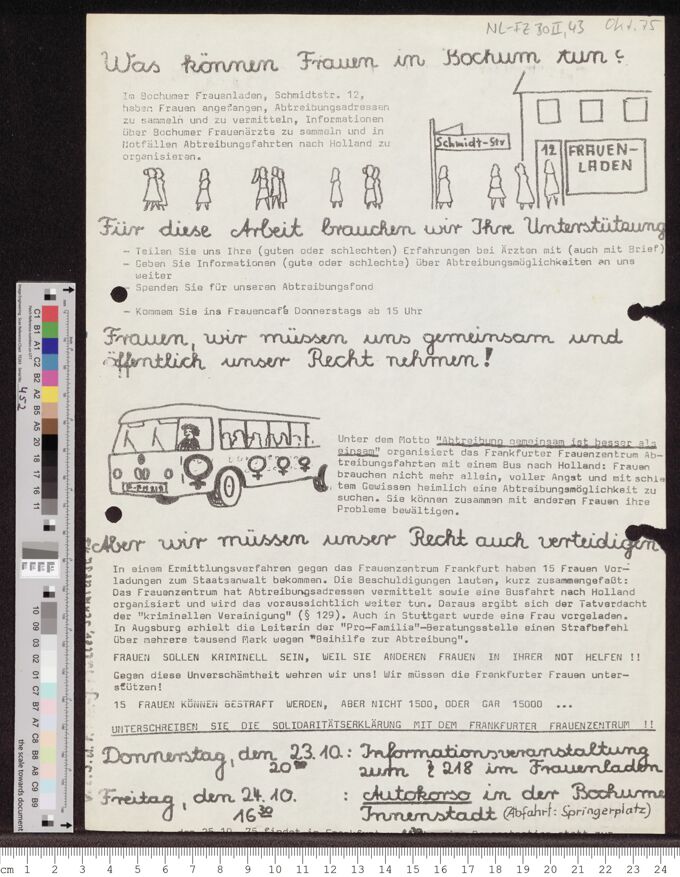 NL-FZ 30 II, 43 Okt. 75
Was können Frauen in Bochum tun?
Im Bochumer Frauenladen, Schmidtstr. 12,
haben Frauen angefangen, Abtreibungsadressen
zu sammeln und zu vermitteln, Informationen
über Bochumer Frauenärzte zu sammeln und in
Notfällen Abtreibungsfahrten nach Holland zu
organisieren.
Schmidt-Str
12
FRAUEN-
LADEN
Für diese Arbeit brauchen wir Ihre Unterstützung
- Teilen Sie uns Ihre (guten oder schlechten) Erfahrungen bei Ärzten mit (auch mit Brief)
- Geben Sie Informationen (gute oder schlechte) über Abtreibungsmöglichkeiten an uns
weiter
- Spenden Sie für unseren Abtreibungsfond
- Kommen Sie ins Frauencafé Donnerstags ab 15 Uhr
Frauen, wir müssen uns gemeinsam und
öffentlich unser Recht nehmen!
Unter dem Motto "Abtreibung gemeinsam ist besser als
einsam" organisiert das Frankfurter Frauenzentrum Ab-
treibungsfahrten mit einem Bus nach Holland: Frauen
brauchen nicht mehr allein, voller Angst und mit schle
tem Gewissen heimlich eine Abtreibungsmöglichkeit zu
suchen. Sie können zusammen mit anderen Frauen ihre
Probleme bewältigen.
Aber wir müssen unser Recht auch verteidigen
In einem Ermittlungsverfahren gegen das Frauenzentrum Frankfurt haben 15 Frauen Vor-
ladungen zum Staatsanwalt bekommen. Die Beschuldigungen lauten, kurz zusammengefaßt:
Das Frauenzentrum hat Abtreibungsadressen vermittelt sowie eine Busfahrt nach Holland
organisiert und wird das voraussichtlich weiter tun. Daraus ergibt sich der Tatverdacht
der "kriminellen Vereinigung" (§ 129). Auch in Stuttgart wurde eine Frau vorgeladen.
In Augsburg erhielt die Leiterin der "Pro-Familia"-Beratungsstelle einen Strafbefehl
über mehrere tausend Mark wegen "Beihilfe zur Abtreibung".
FRAUEN SOLLEN KRIMINELL SEIN, WEIL SIE ANDEREN FRAUEN IN IHRER NOT HELFEN !!
Gegen diese Unverschämtheit wehren wir uns! Wir müssen die Frankfurter Frauen unter-
stützen!
15 FRAUEN KÖNNEN BESTRAFT WERDEN, ABER NICHT 1500, ODER GAR 15000 ...
UNTERSCHREIBEN SIE DIE SOLIDARITÄTSERKLÄRUNG MIT DEM FRANKFURTER FRAUENZENTRUM !!
Donnerstag, den 23.10.: Informationsveranstaltung
20⁰⁰ zum § 218 im Frauenladen
Freitag, den 24.10. : Autokorso in der Bochume
16³⁰ Innenstadt (Abfahrt: Springerplatz)
C1 B1 A1 C2 B2 A2 B5 A5 20 18 17 16 11
452
10 09 03 02 01 C7 B7 A7 C8 B8 A8 C9 B9
the scale towards document
cm 1 2 3 4 5 6 7 8 9 10 11 12 13 14 15 16 17 18 19 20 21 22 23 24